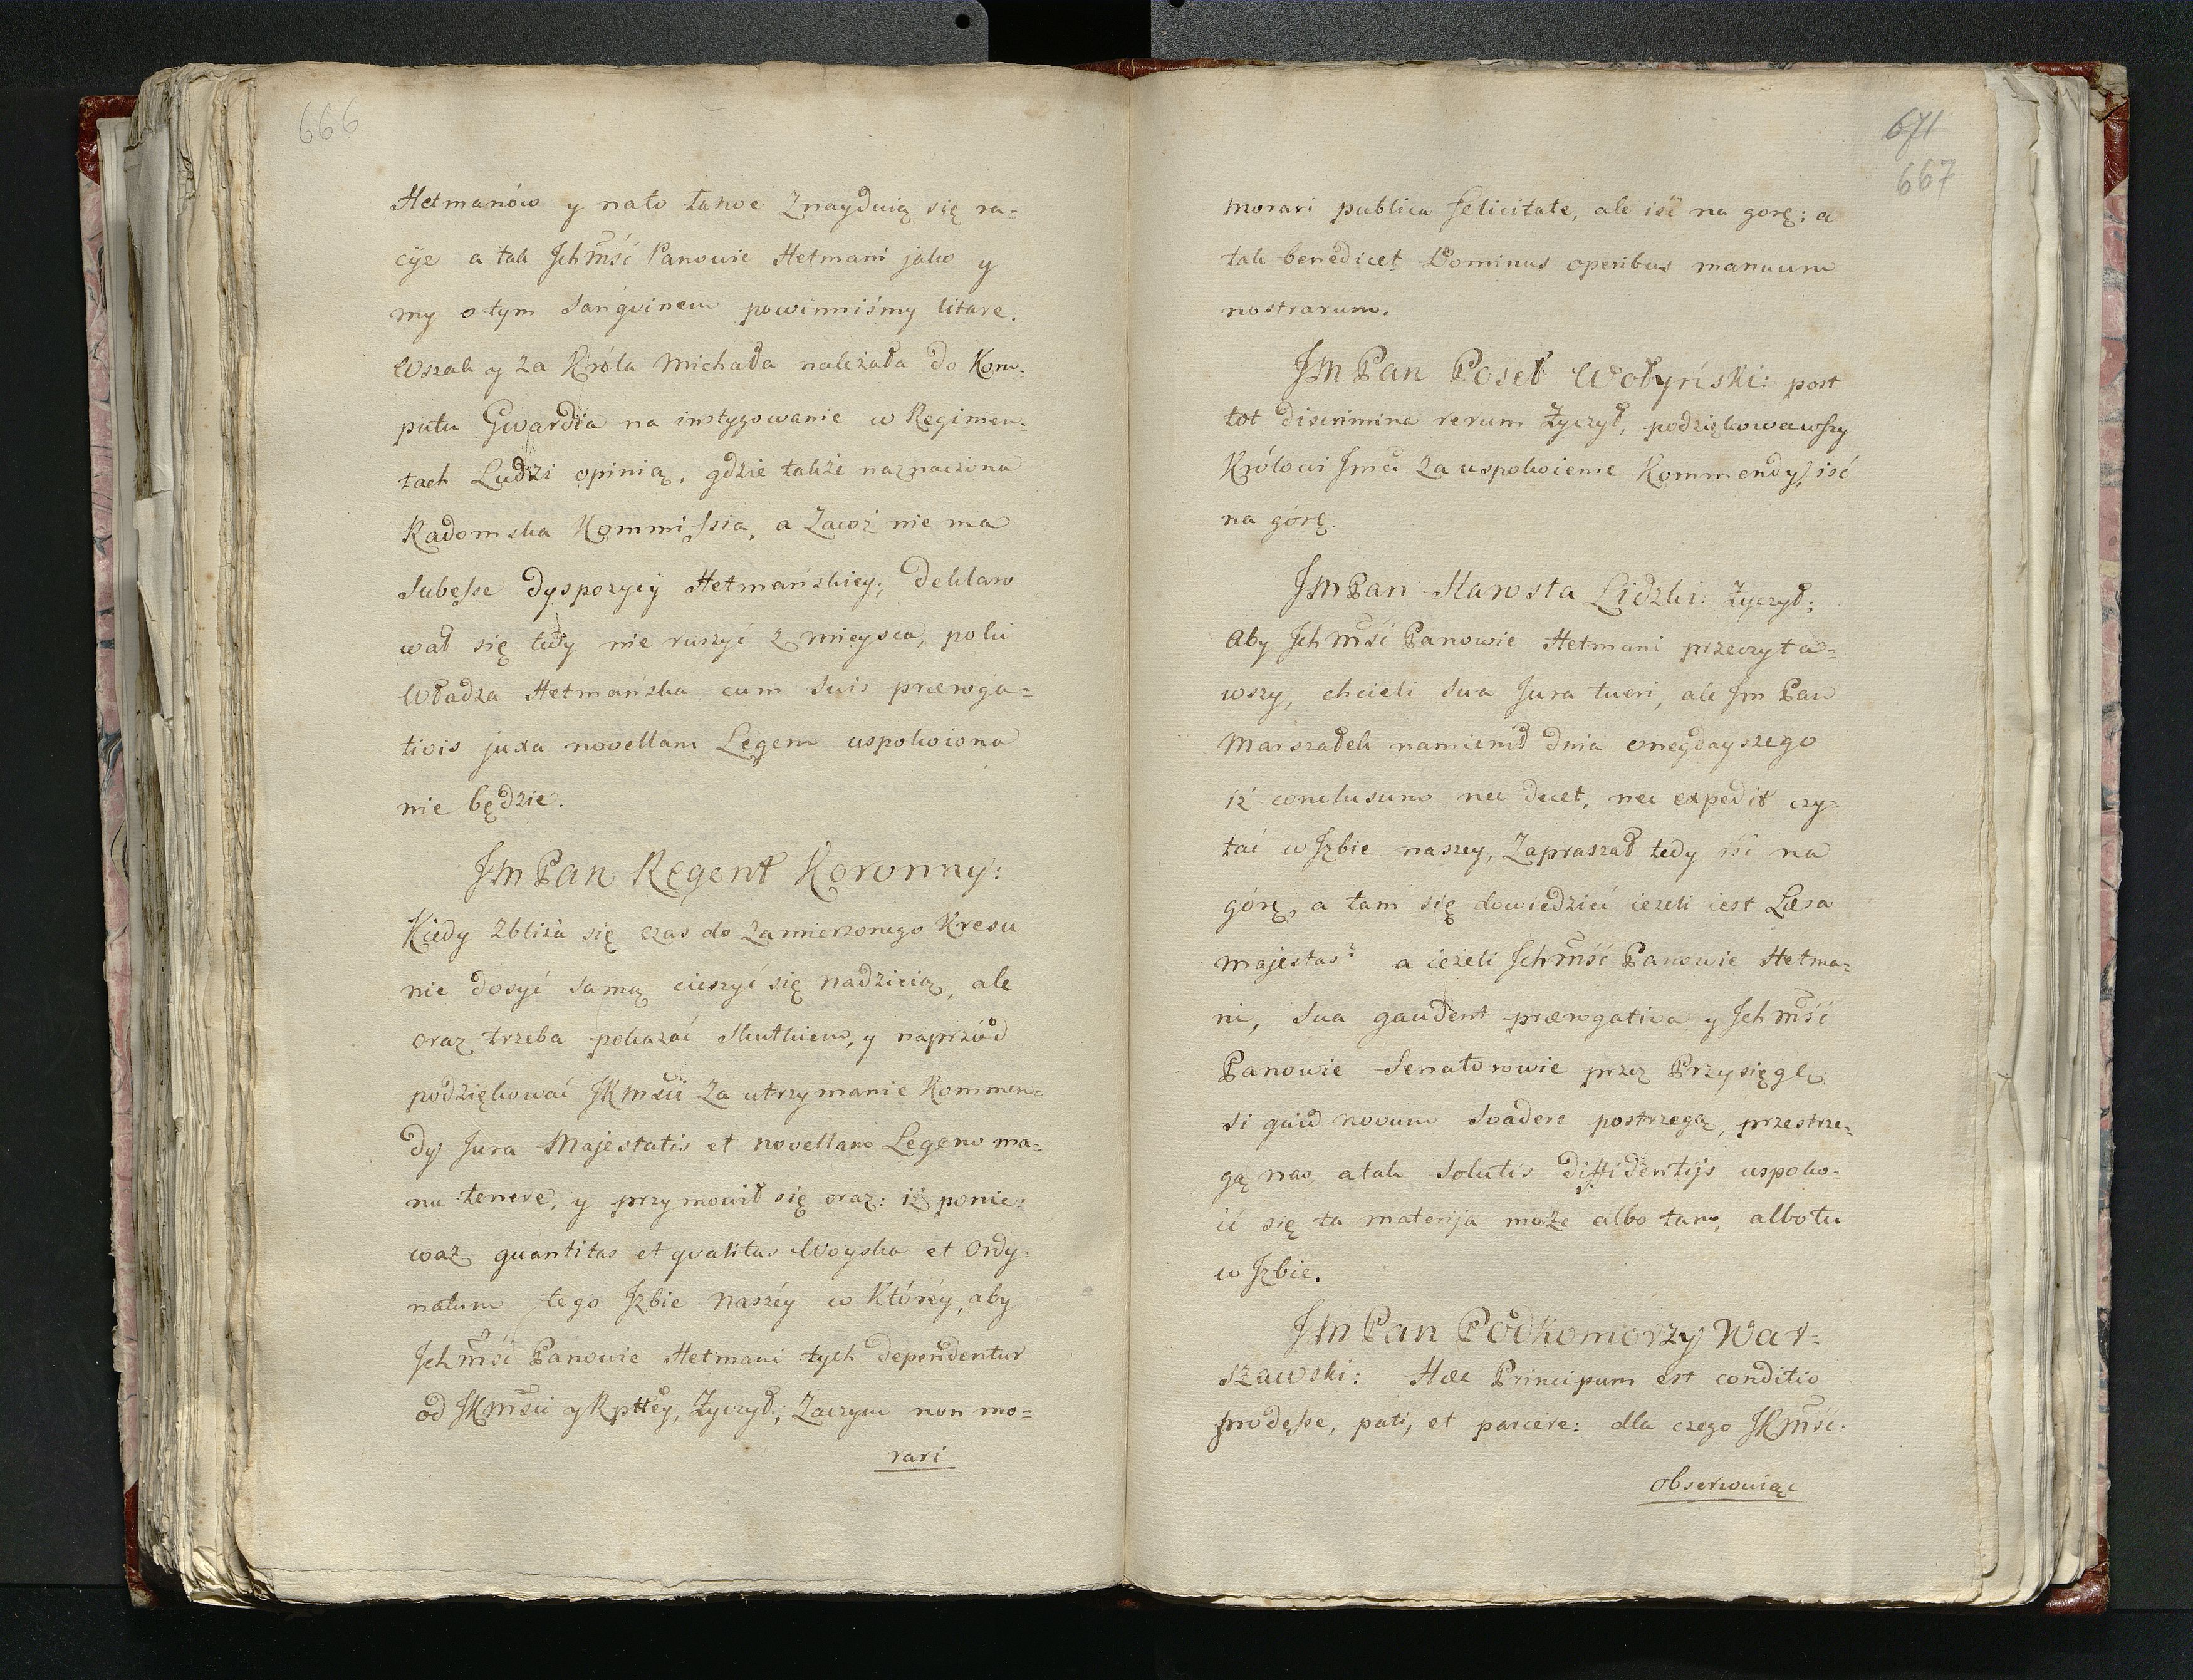 666
Hetmanów y nato łatwe Znayduią się ra=
cÿe a tak Jchmść Panowie Hetmani jako y
my o tym Sangvinem powinniśmy litare.
Wszak y za Króla Michała należała do Kom=
putu Gwardia na instygowanie w Regimen=
tach Ludzi opinią, gdzie także naznaczona
Radomska Kommissia, a Zawoż nie ma
Subesse dyspozycÿ Hetmańskiey; deklaro
wał się tedy nie ruszyć z mieysca, poki
Władza Hetmańska cum Suis præroga=
tivis juxa novellam Legem uspokoiona
nie będzie.
JmPan Regent Koronny:
Kiedy zbliża się czas do zamierzonego Kresu
nie dosyć samą cieszyć się nadzieią, ale
oraz trzeba pokazać Skutkiem, y naprzód
podziękować JKmści za utrzymanie Kommen=
dy Jura Majestatis et novellam Legem ma=
nu tenere, y przymowił się oraz: iż ponie=
waż quantitas et qvalitas Woyska et Ordy=
natum tego Jzbie naszéy w Któréy, aby
Jchmść Panowie Hetmani tych dependentur
od JKmści y Rpttéy, Życzył; Zaczym non mo=
rari
671
667
morari publica felicitate, ale iść na gorę; a
tak benedicet Dominus operibus manuum
nostrarum.
JM Pan Poseł Wołyński: post
tot discrimina rerum Życzył, podziękowawszy
Królowi Jmci za uspokoienie Kommendy, iść
na górę.
JmPan Starosta Lidzki: Życzył;
Aby Jchmść Panowie Hetmani przeczyta=
wszy, chcieli sua Jura tueri, ale Jm Pan
Marszałek namienił dnia onegdayszego
iż conclusum nec decet, nec expedit czy=
tać w Jzbie naszey, Zapraszał tedy iść na
górę, a tam się dowiedzieć ieżeli iest Læsa
majestas? a ieżeli Jchmść Panowie Hetma=
ni, Sua gaudent prærogativa y Jchmść
Panowie Senatorowie przez Przysięgę
si quid novum Svadere postrzegą, przestrze=
gą nas, atak Solutis diffidentijs uspoko=
ić się ta materija może albo tam, albo tu
w Jzbie.
JmPan Podkomorzy War=
szawski: Hæc Principum est conditio
prodesse, pati, et parcere: dla czego JKmść:
obserwuiąc